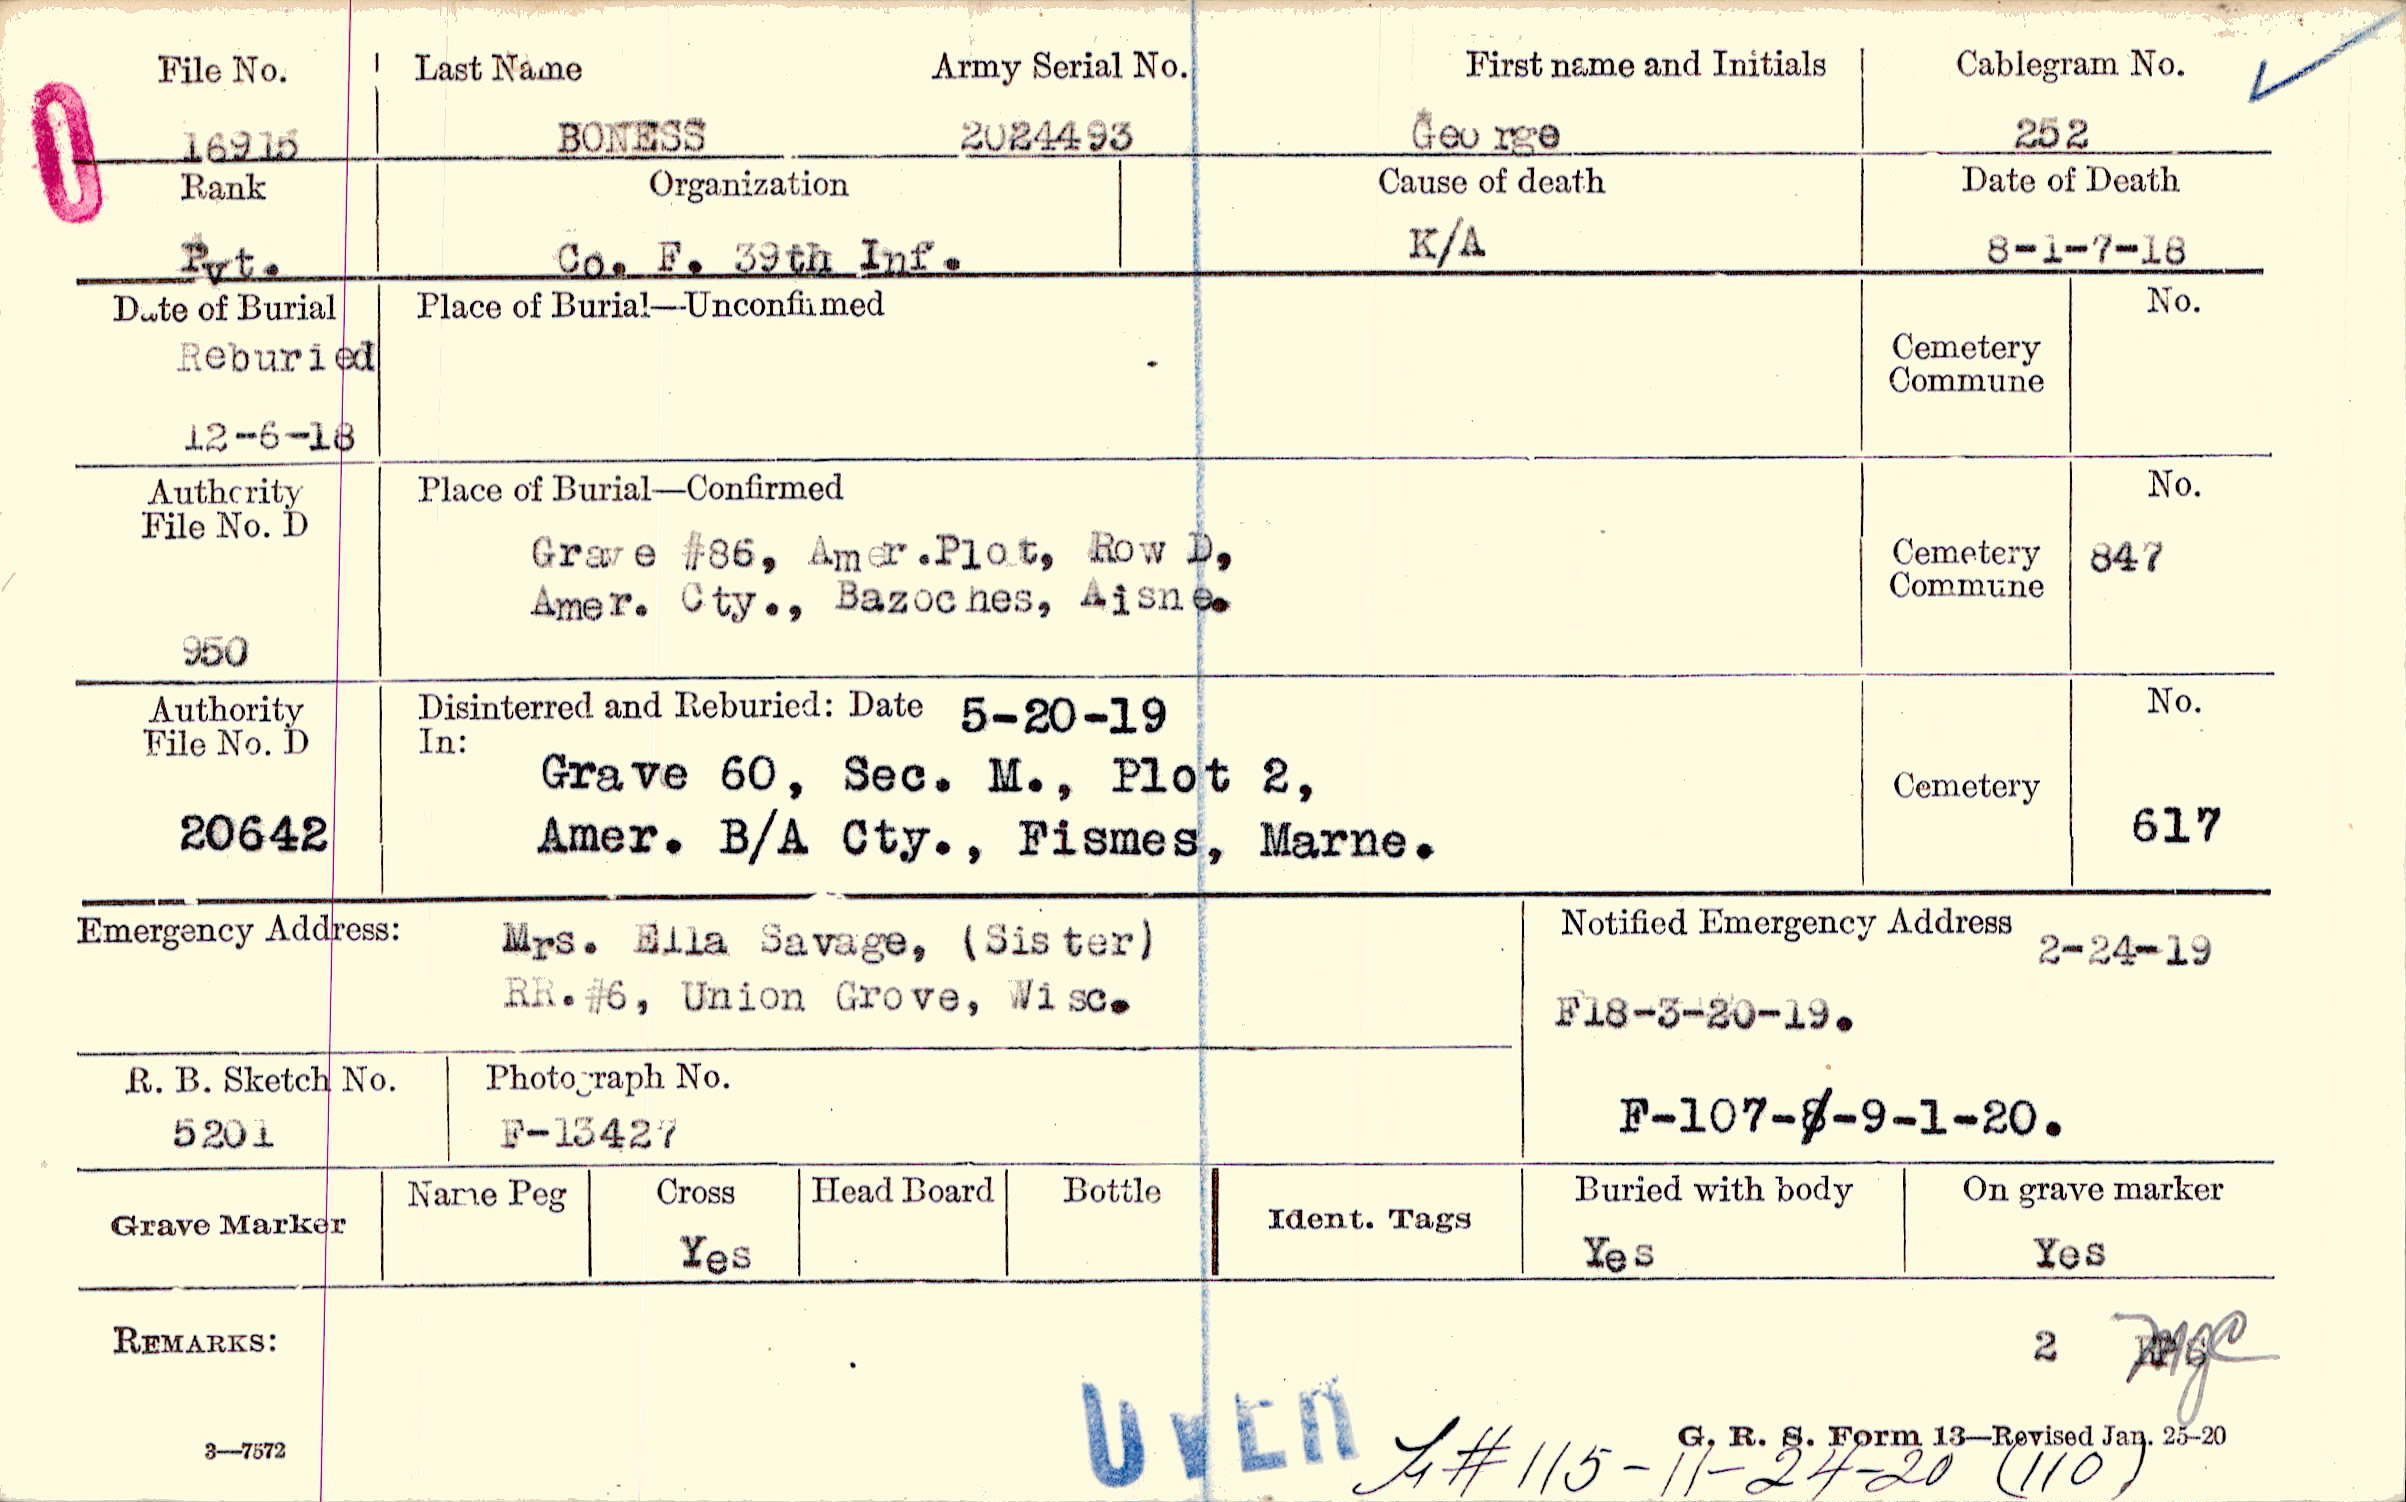 File No. Last Name Army Serial No. First name and Initials Cablegram No.
16915 BONESS 2024493 George 252
Rank Organization Cause of death Date of Death
Pvt. Co. F. 39th Inf. K/A 8-1-7-18
Date of Burial Place of Burial—Unconfirmed No.
Reburied Cemetery
Commune
12-6-18
Authority Place of Burial—Confirmed No.
File No. D
Grave #86, Amer.Plot, Row D, Cemetery 847
Amer. Cty., Bazoches, Aisne. Commune
950
Authority Disinterred and Reburied: Date 5-20-19 No.
File No. D In:
Grave 60, Sec. M., Plot 2, Cemetery
20642 Amer. B/A Cty., Fismes, Marne. 617
Emergency Address: Mrs. Ella Savage, (Sister) Notified Emergency Address 2-24-19
RR.#6, Union Grove, Wisc. F18-3-20-19.
R. B. Sketch No. Photograph No.
5201 F-13427 F-107-8-9-1-20.
Grave Marker Name Peg Cross Head Board Bottle Ident. Tags Buried with body On grave marker
Yes Yes Yes
REMARKS: 2
OVER
3—7572 G. R. S. Form 13—Revised Jan. 25-20
#115-11-24-20 (110)